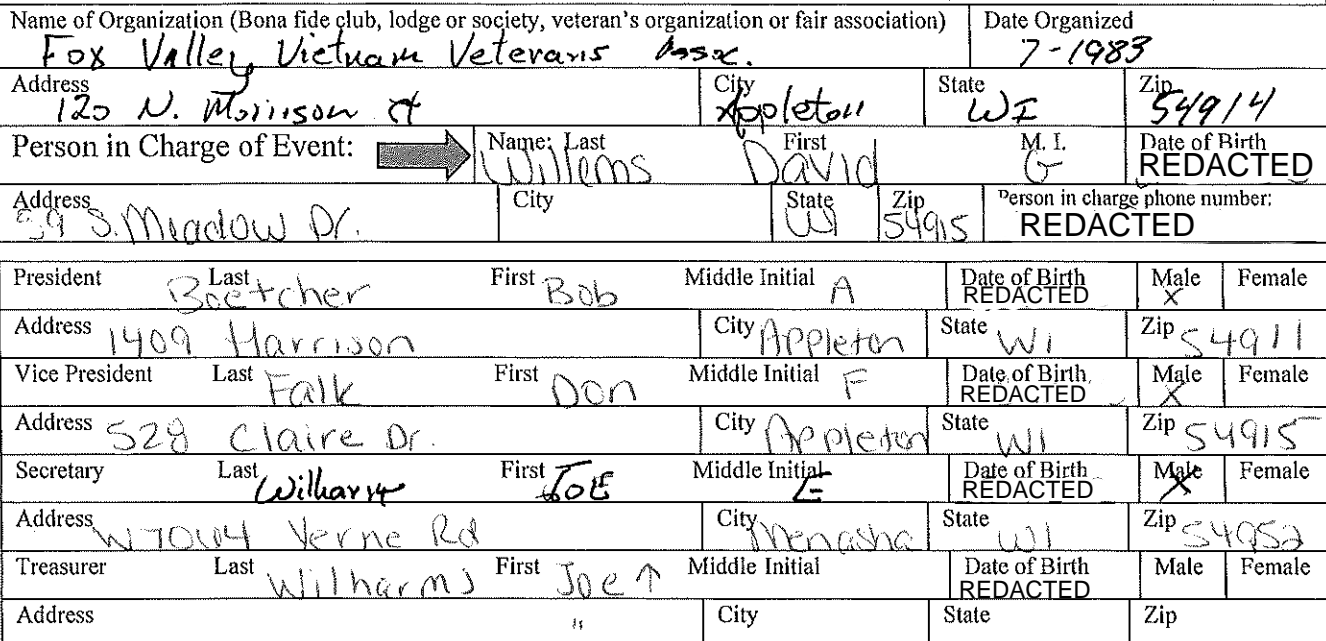 Name of Organization (Bona fide club, lodge or society, veteran's organization or fair association) Date Organized
Fox Valley Vietnam Veterans Assx. 7-1983
Address City State Zip
120 N. Morrison St Appleton WI 54914
Person in Charge of Event: Name: Last First M. I. Date of Birth
Willems David G REDACTED
Address City State Zip Person in charge phone number:
S. Meadow Dr. WI 54915 REDACTED
President Last Boetcher First Bob Middle Initial A Date of Birth REDACTED Male X Female
Address 1409 Harrison City Appleton State WI Zip 54911
Vice President Last Falk First Don Middle Initial F Date of Birth REDACTED Male X Female
Address 528 Claire Dr. City Appleton State WI Zip 54915
Secretary Last Wilharm First JOE Middle Initial E Date of Birth REDACTED Male X Female
Address Verne Rd City Menasha State WI Zip 54952
Treasurer Last Wilharms First Joe ↑ Middle Initial Date of Birth REDACTED Male Female
Address " City State Zip